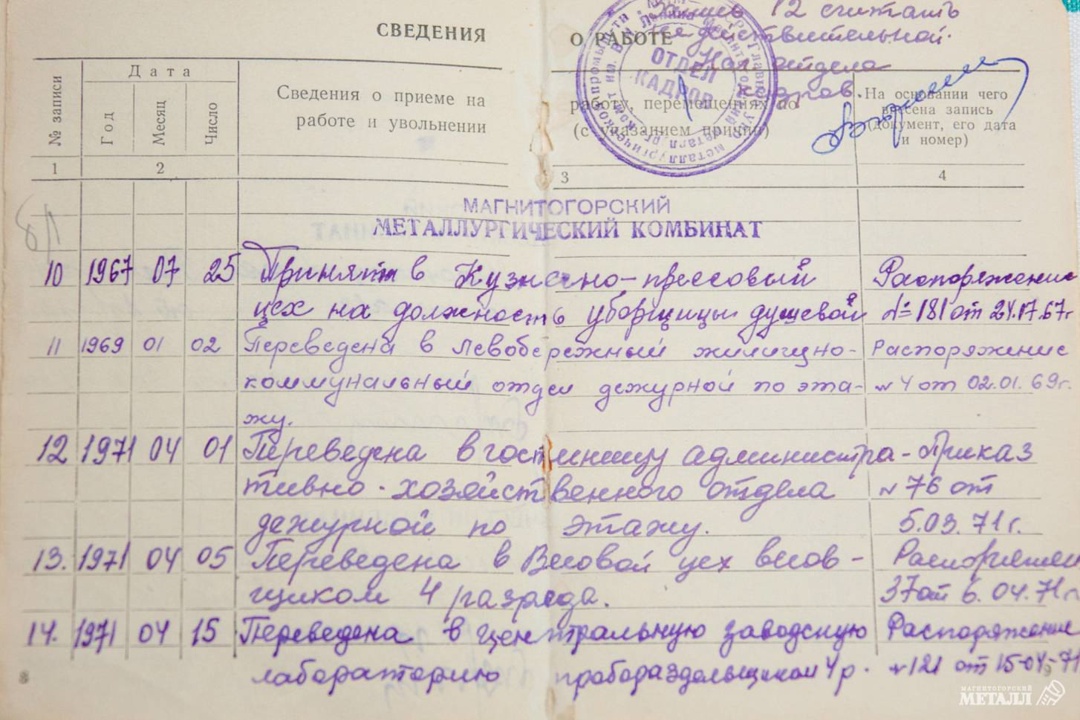 СВЕДЕНИЯ О РАБОТЕ
12 считать
недействительной.
Нач. отдела
кадров.
ОТДЕЛ
КАДРОВ
№ записи
Дата
Год
Месяц
Число
Сведения о приеме на работу, перемещениях по
работе и увольнении (с указанием причин)
На основании чего
внесена запись
(документ, его дата
и номер)
1 2 3 4
МАГНИТОГОРСКИЙ
МЕТАЛЛУРГИЧЕСКИЙ КОМБИНАТ
10 1967 07 25 Принята в Кузнечно-прессовый Распоряжение
цех на должность уборщицы душевой №181 от 24.07.67г
11 1969 01 02 Переведена в Левобережный жилищно- Распоряжение
коммунальный отдел дежурной по эта- №4 от 02.01.69г.
жу.
12 1971 04 01 Переведена в гостиницу администра- Приказ
тивно-хозяйственного отдела №76 от
дежурной по этажу. 5.03.71г.
13. 1971 04 05 Переведена в Весовой цех весов-
щиком 4 разряда. 37 от 6.04.71г.
14. 1971 04 15 Переведена в Центральную заводскую Распоряжение
лабораторию пробораздельщиком 4р. №121 от 15-04-71
8
МАГНИТОГОРСКИЙ
МЕТАЛЛ